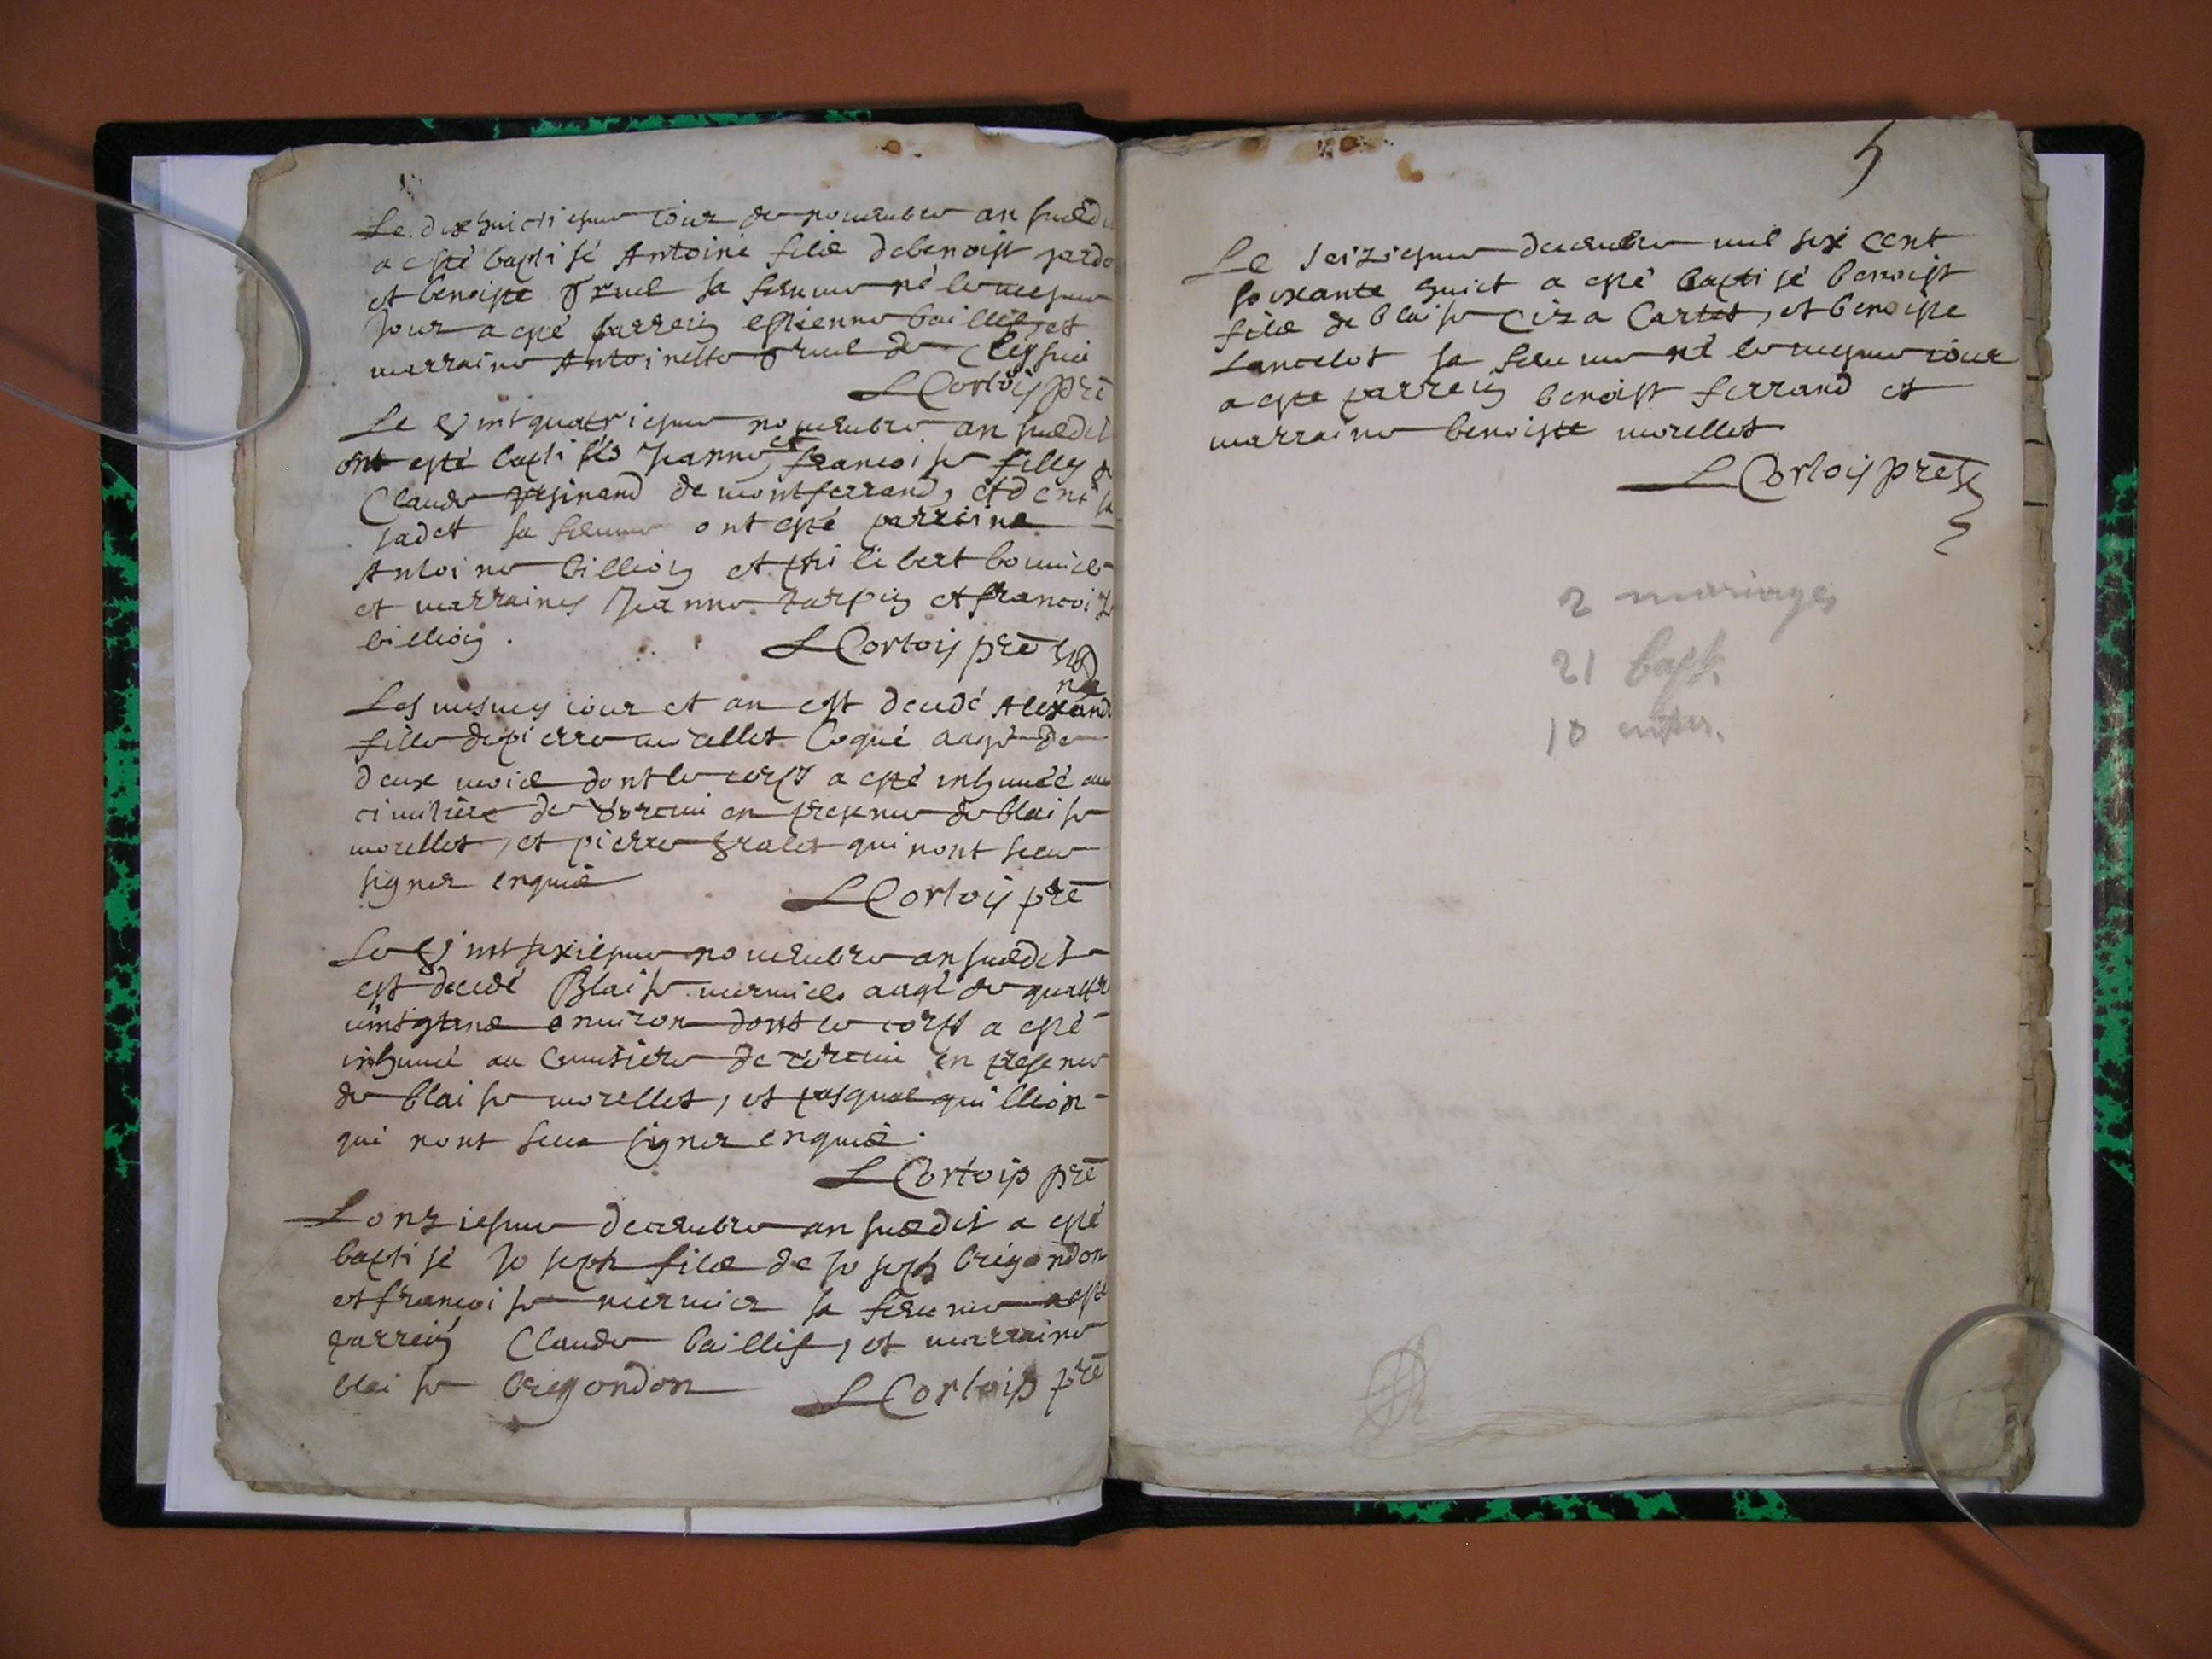 Le dixhuictiesme iour de nouembre an susdi
a esté baptisé Antoine filz de benoist perdo
et benoiste sa femme né le mesme
Jour a esté parrein estienne baillif et
marraine Antoinette de
L Cortois pre
Le vintquatriesme nouembre an susdit
ont esté baptisés Jeanne, et francoise filles de
Claude de montferrand, et
sadet sa femme ont esté parreins
Antoine billion et philibert
et marraines Jeanne et francoise
billion .
L Cortois pre
Les mesmes iour et an est decedé Alexand
re
fille de pierre morellet Coqué aagé de
deux mois dont le corps a esté inhumée au
cimitiere de en presence de blaise
morellet, et pierre gralet qui nont sceu
signer enquis
L Cortois pre
Le vintsexiesme nouembre an susdit
est decedé Blaise mermier aagé de quattre
vints ans enuiron dont le corps a esté
inhumé au Cimistiere de en presence
de blaise morellet, et pasqual quillion
qui nont sceu signer enquis .
L Cortois pre
Lonziesme decembre an susdit a esté
baptisé Joseph filz de Joseph brigondon
et francoise mermier sa femme a esté
parrein Claude baillif, et marraine
blaise brigondon L Cortois pre
5
Le seiziesme decembre mil six cent
soixante huict a esté baptisé benoist
filz de blaise Ciza Cartet, et benoiste
Lancelot sa femme né le mesme iour
a esté parrein benoist ferrand et
marraine benoiste morellet
L Cortois pretre
2 mariages
21 bapt.
10 enter.